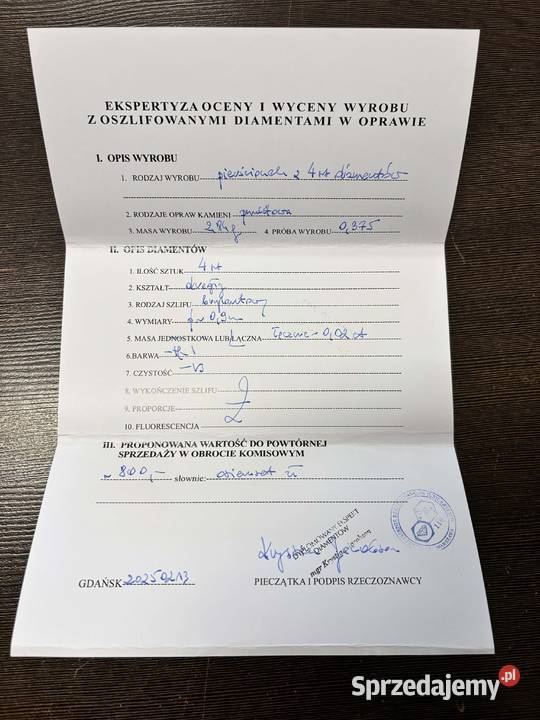 EKSPERTYZA OCENY I WYCENY WYROBU
Z OSZLIFOWANYMI DIAMENTAMI W OPRAWIE
I. OPIS WYROBU
1. RODZAJ WYROBU pierścionek z 4 szt diamentów
2. RODZAJE OPRAW KAMIENI punktowa
3. MASA WYROBU 2,84 g 4. PRÓBA WYROBU 0,375
II. OPIS DIAMENTÓW
1. ILOŚĆ SZTUK 4 szt
2. KSZTAŁT okrągły
3. RODZAJ SZLIFU brylantowy
4. WYMIARY 0,9
5. MASA JEDNOSTKOWA LUB ŁĄCZNA łącznie ~ 0,02 ct
6. BARWA
7. CZYSTOŚĆ
8. WYKOŃCZENIE SZLIFU
9. PROPORCJE
10. FLUORESCENCJA
III. PROPONOWANA WARTOŚĆ DO POWTÓRNEJ
SPRZEDAŻY W OBROCIE KOMISOWYM
~ 800,- słownie: osiemset zł
DYPLOMOWANY EKSPERT
DIAMENTÓW
mgr
GDAŃSK 20250213 PIECZĄTKA I PODPIS RZECZOZNAWCY
Sprzedajemy.pl